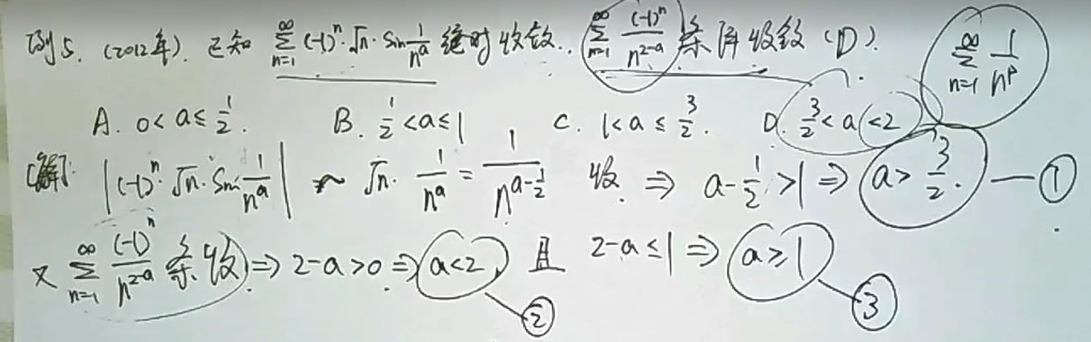 例5. (2012年). 已知 $\sum_{n=1}^{\infty}(-1)^n\cdot\sqrt{n}\cdot\sin\frac{1}{n^a}$ 绝对收敛. $\sum_{n=1}^{\infty}\frac{(-1)^n}{n^{2-a}}$ 条件收敛 (D). $\sum_{n=1}^{\infty}\frac{1}{n^p}$
A. $0<a\le\frac{1}{2}$. B. $\frac{1}{2}<a\le 1$ C. $1<a\le\frac{3}{2}$. D. $\frac{3}{2}<a<2$
[解]: $\left|(-1)^n\cdot\sqrt{n}\cdot\sin\frac{1}{n^a}\right| \sim \sqrt{n}\cdot\frac{1}{n^a}=\frac{1}{n^{a-\frac{1}{2}}}$ 收 $\Rightarrow a-\frac{1}{2}>1\Rightarrow a>\frac{3}{2}$. — ①
又 $\sum_{n=1}^{\infty}\frac{(-1)^n}{n^{2-a}}$ 条收 $\Rightarrow 2-a>0\Rightarrow a<2$ 且 $2-a\le 1\Rightarrow a\ge 1$
② ③